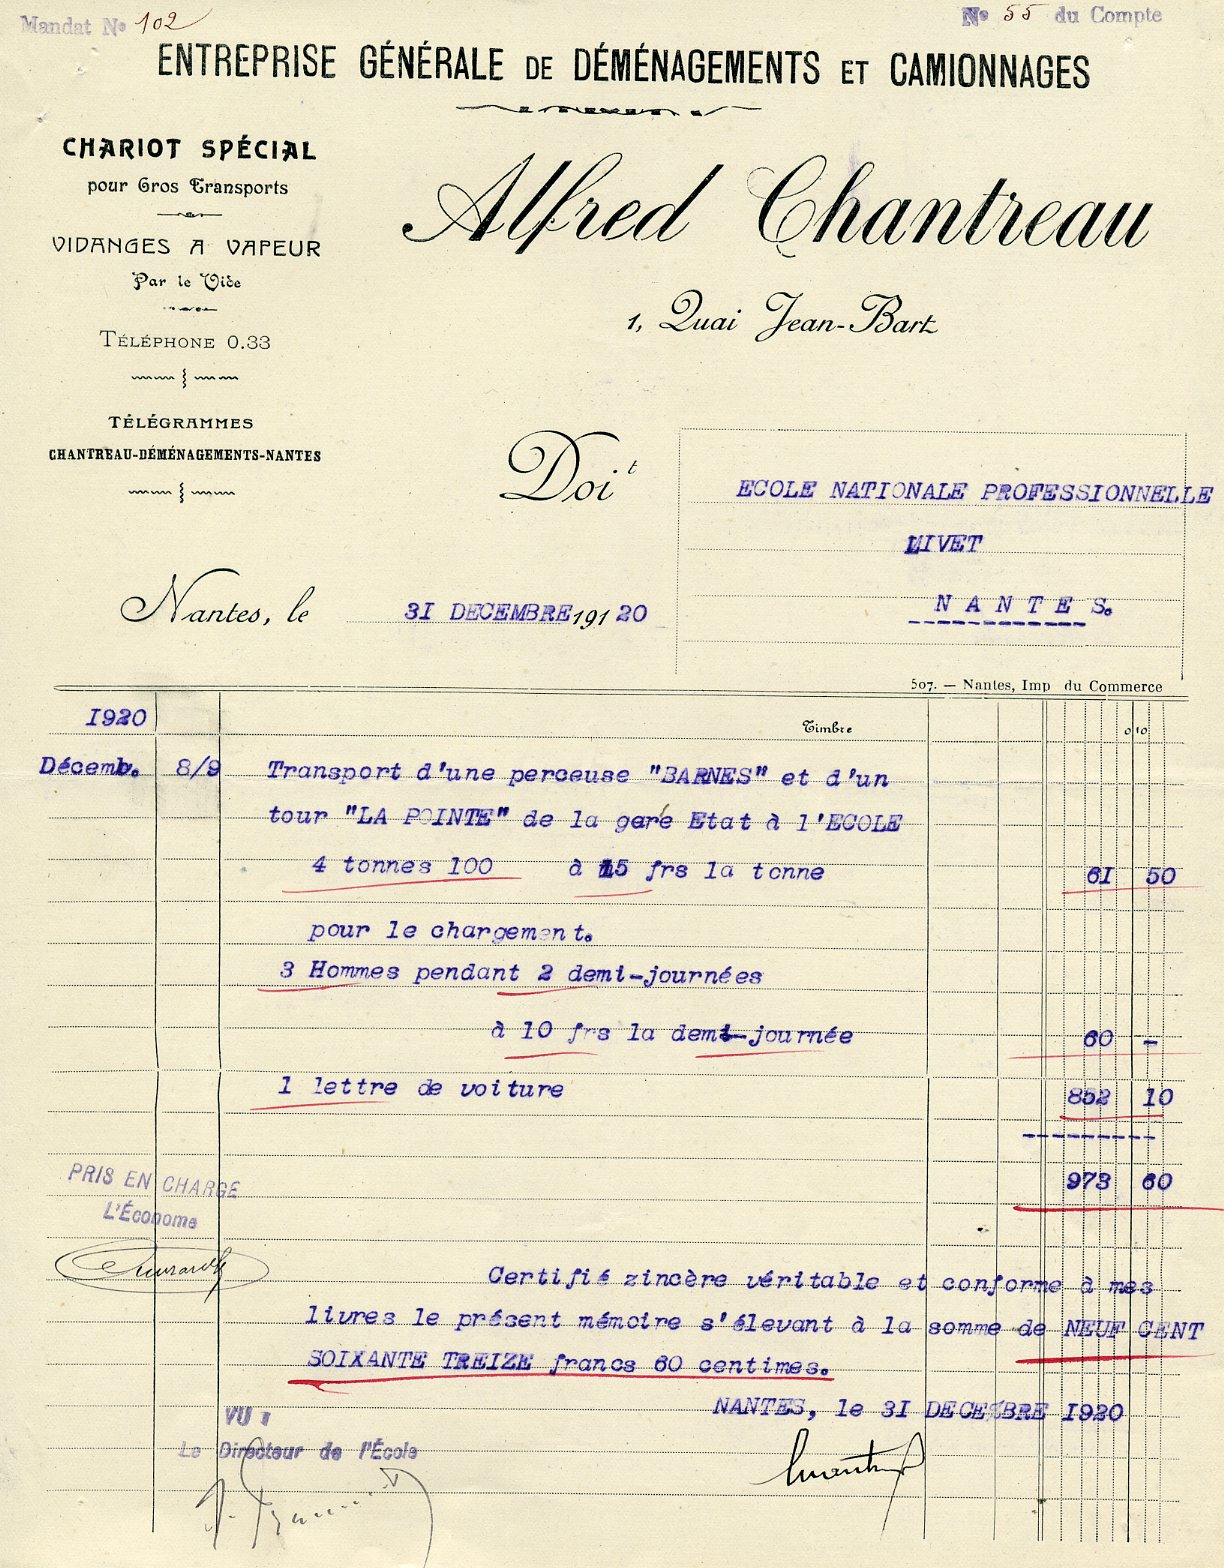 Mandat No 102
No 55 du Compte
ENTREPRISE GÉNÉRALE DE DÉMÉNAGEMENTS ET CAMIONNAGES
CHARIOT SPÉCIAL
pour Gros Transports
VIDANGES A VAPEUR
Par le Vide
TÉLÉPHONE 0.33
TÉLÉGRAMMES
CHANTREAU-DÉMÉNAGEMENTS-NANTES
Alfred Chantreau
1, Quai Jean-Bart
Doit
ECOLE NATIONALE PROFESSIONNELLE
LIVET
N A N T E S.
Nantes, le 31 DECEMBRE 191 20
507. — Nantes, Imp du Commerce
1920
Timbre 0 10
Décemb. 8/9 Transport d'une perceuse "BARNES" et d'un
tour "LA POINTE" de la gare Etat à l'ECOLE
4 tonnes 100 à 15 frs la tonne 61 50
pour le chargement.
3 Hommes pendant 2 demi-journées
à 10 frs la demi-journée 60 -
1 lettre de voiture 852 10
973 60
PRIS EN CHARGE
L'Économe
Certifié zincère véritable et conforme à mes
livres le présent mémoire s'élevant à la somme de NEUF CENT
SOIXANTE TREIZE francs 60 centimes.
NANTES, le 31 DECEMBRE 1920
VU :
Le Directeur de l'École